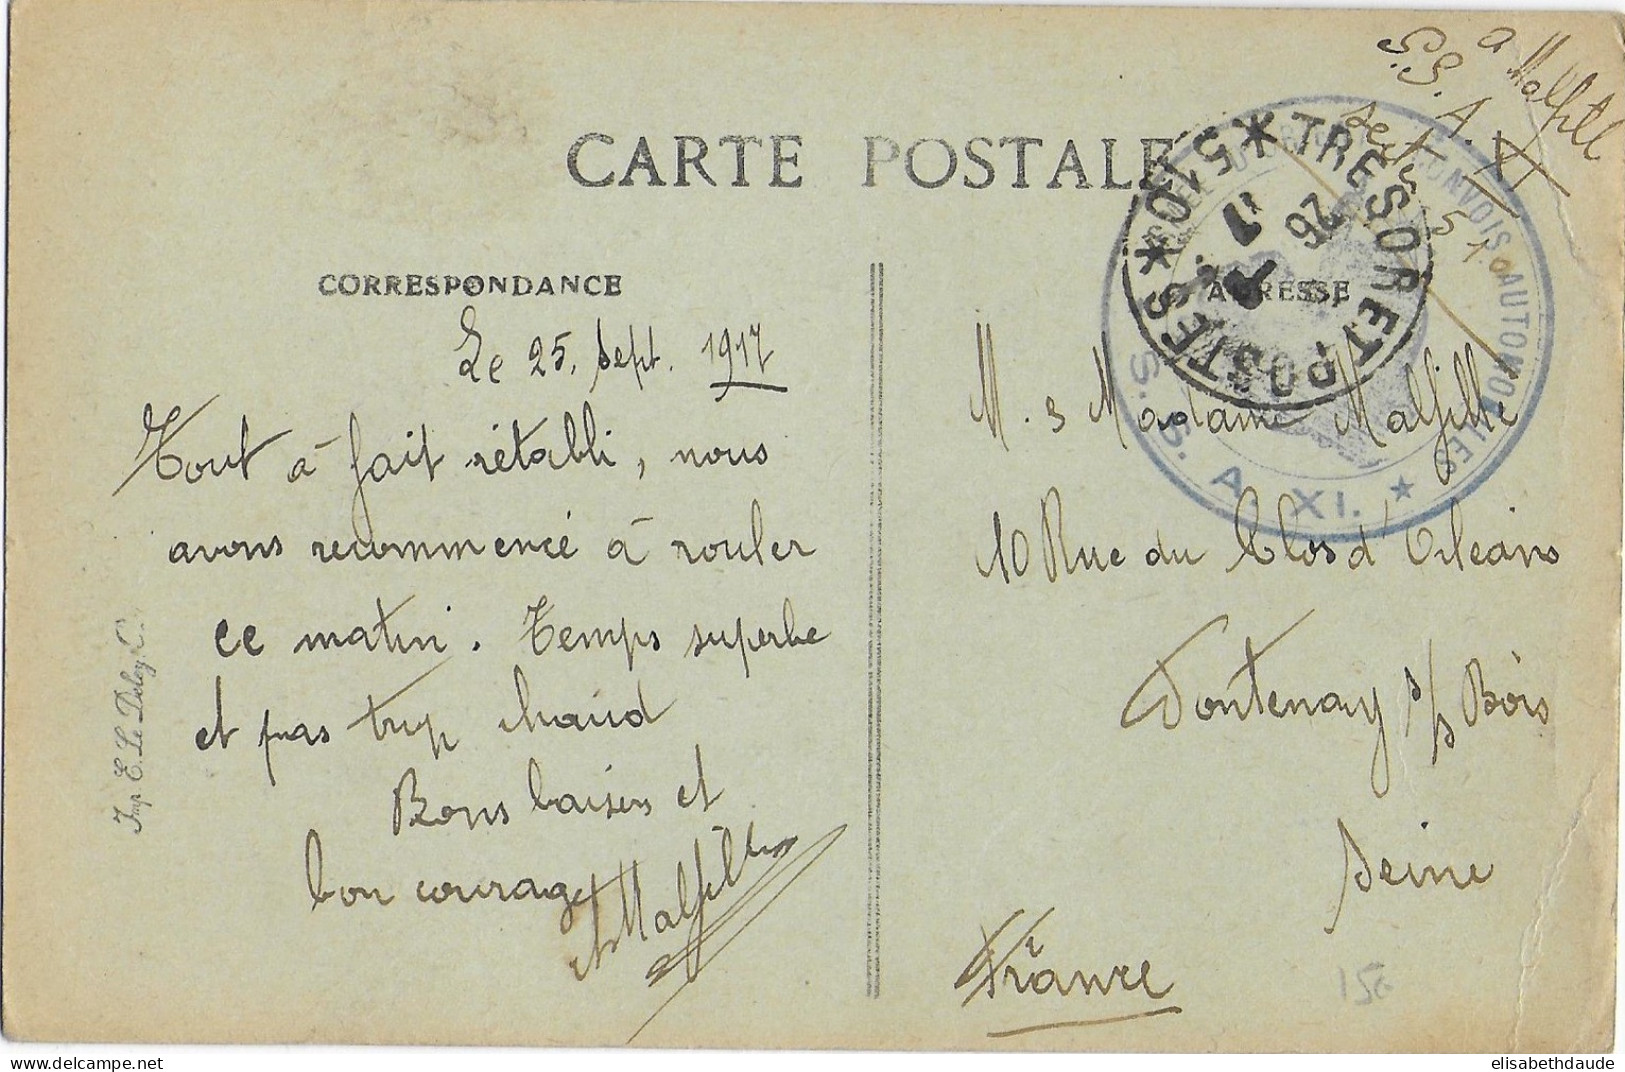 a Malfill
S.S.A. XI
Sect. 510
CARTE POSTALE
TRESOR ET POSTES
* 510 *
26
17
CONVOIS AUTOMOBILES
S. S. A. XI. ★
CORRESPONDANCE
ADRESSE
Le 25. Sept. 1917
Tout à fait rétabli, nous
avons recommencé à rouler
ce matin. Temps superbe
et pas trop chaud
Bons baisers et
bon courage
Malfill
M. & Madame Malfille
10 Rue du Clos d'Orléans
Fontenay s/s Bois
Seine
France
150
Imp. E. Le Deley,
elisabethdaude